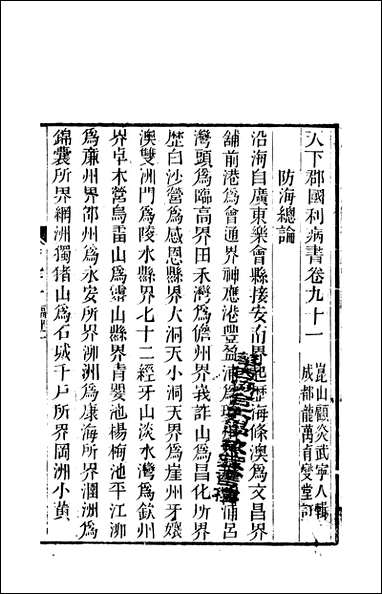 天下郡國利病書卷九十一
崑山顧炎武寧人輯
成都龍萬育燮堂訂
防海總論
沿海自廣東樂會縣接安南界歷海條澳爲文昌界
鋪前港爲會通界神應港豐盈浦爲浦呂
灣頭爲臨高界田禾灣爲儋州界峩詐山爲昌化所界
歴白沙營爲感恩縣界大洞天小洞天界爲崖州牙孃
澳雙洲門爲陵水縣界七十二經牙山淡水灣爲欽州
界卓木營烏雷山爲靈山縣界青嬰池楊梅池平江泖
爲廉州界郍州爲永安所界泖洲爲康海所界潿洲爲
錦囊所界網洲獨猪山爲石城千戸所界岡洲小黄